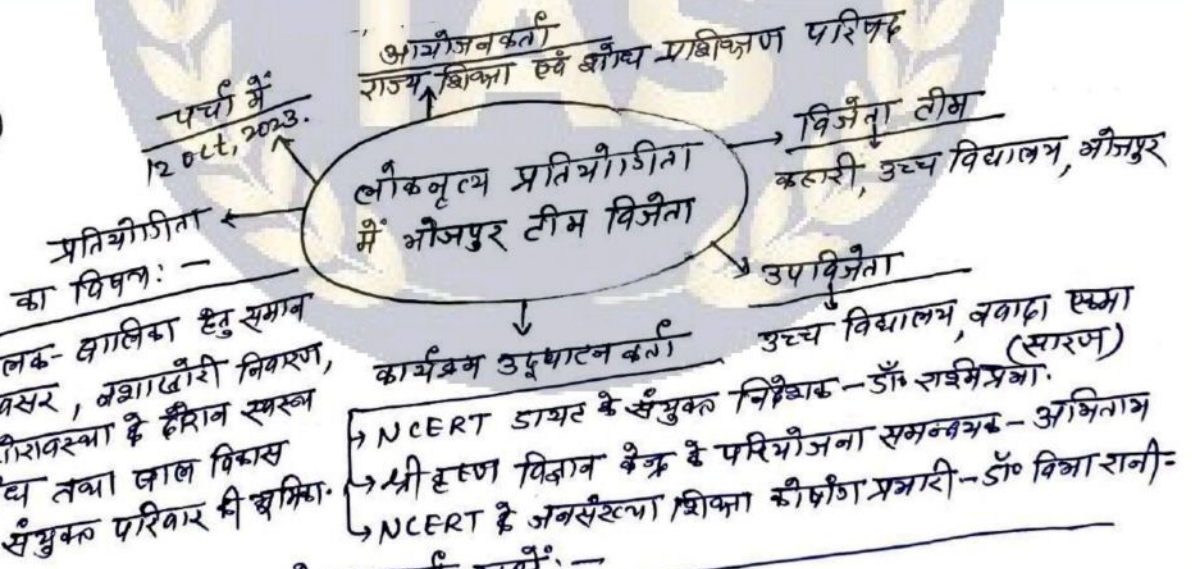 आयोजनकर्ता
राज्य शिक्षा एवं शोध प्रशिक्षण परिषद
चर्चा में
12 Oct, 2023.
लोकनृत्य प्रतियोगीता
में भोजपुर टीम विजेता
विजेता टीम
उच्च विद्यालय, भोजपुर
उपविजेता
उच्च विद्यालय, नवादा एकमा
(सारण)
प्रतियोगीता
का विषय: -
लक- बालिका हेतु समान
वसर, नशाखोरी निवारण,
शोरावस्था के दौरान स्वस्थ
ंध तथा बाल विकास
संयुक्त परिवार की भूमिका.
कार्यक्रम उद्घाटन कर्ता
→ NCERT डायट के संयुक्त निदेशक - डॉ॰ रश्मिप्रभा.
→ श्री कृष्ण विज्ञान केन्द्र के परियोजना समन्वयक - अमिताभ
→ NCERT के जनसंख्या शिक्षा कोषांग प्रभारी - डॉ॰ विभा रानी